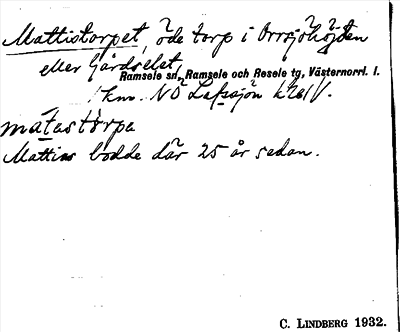 Mattistorpet, öde torp i Orrsjöhöjden
eller Gårdselet,
Ramsele sn, Ramsele och Resele tg, Västernorrl. l.
1 km. NÖ Lafssjön
matastòrpe
Mattias bodde där 25 år sedan.
C. LINDBERG 1932.